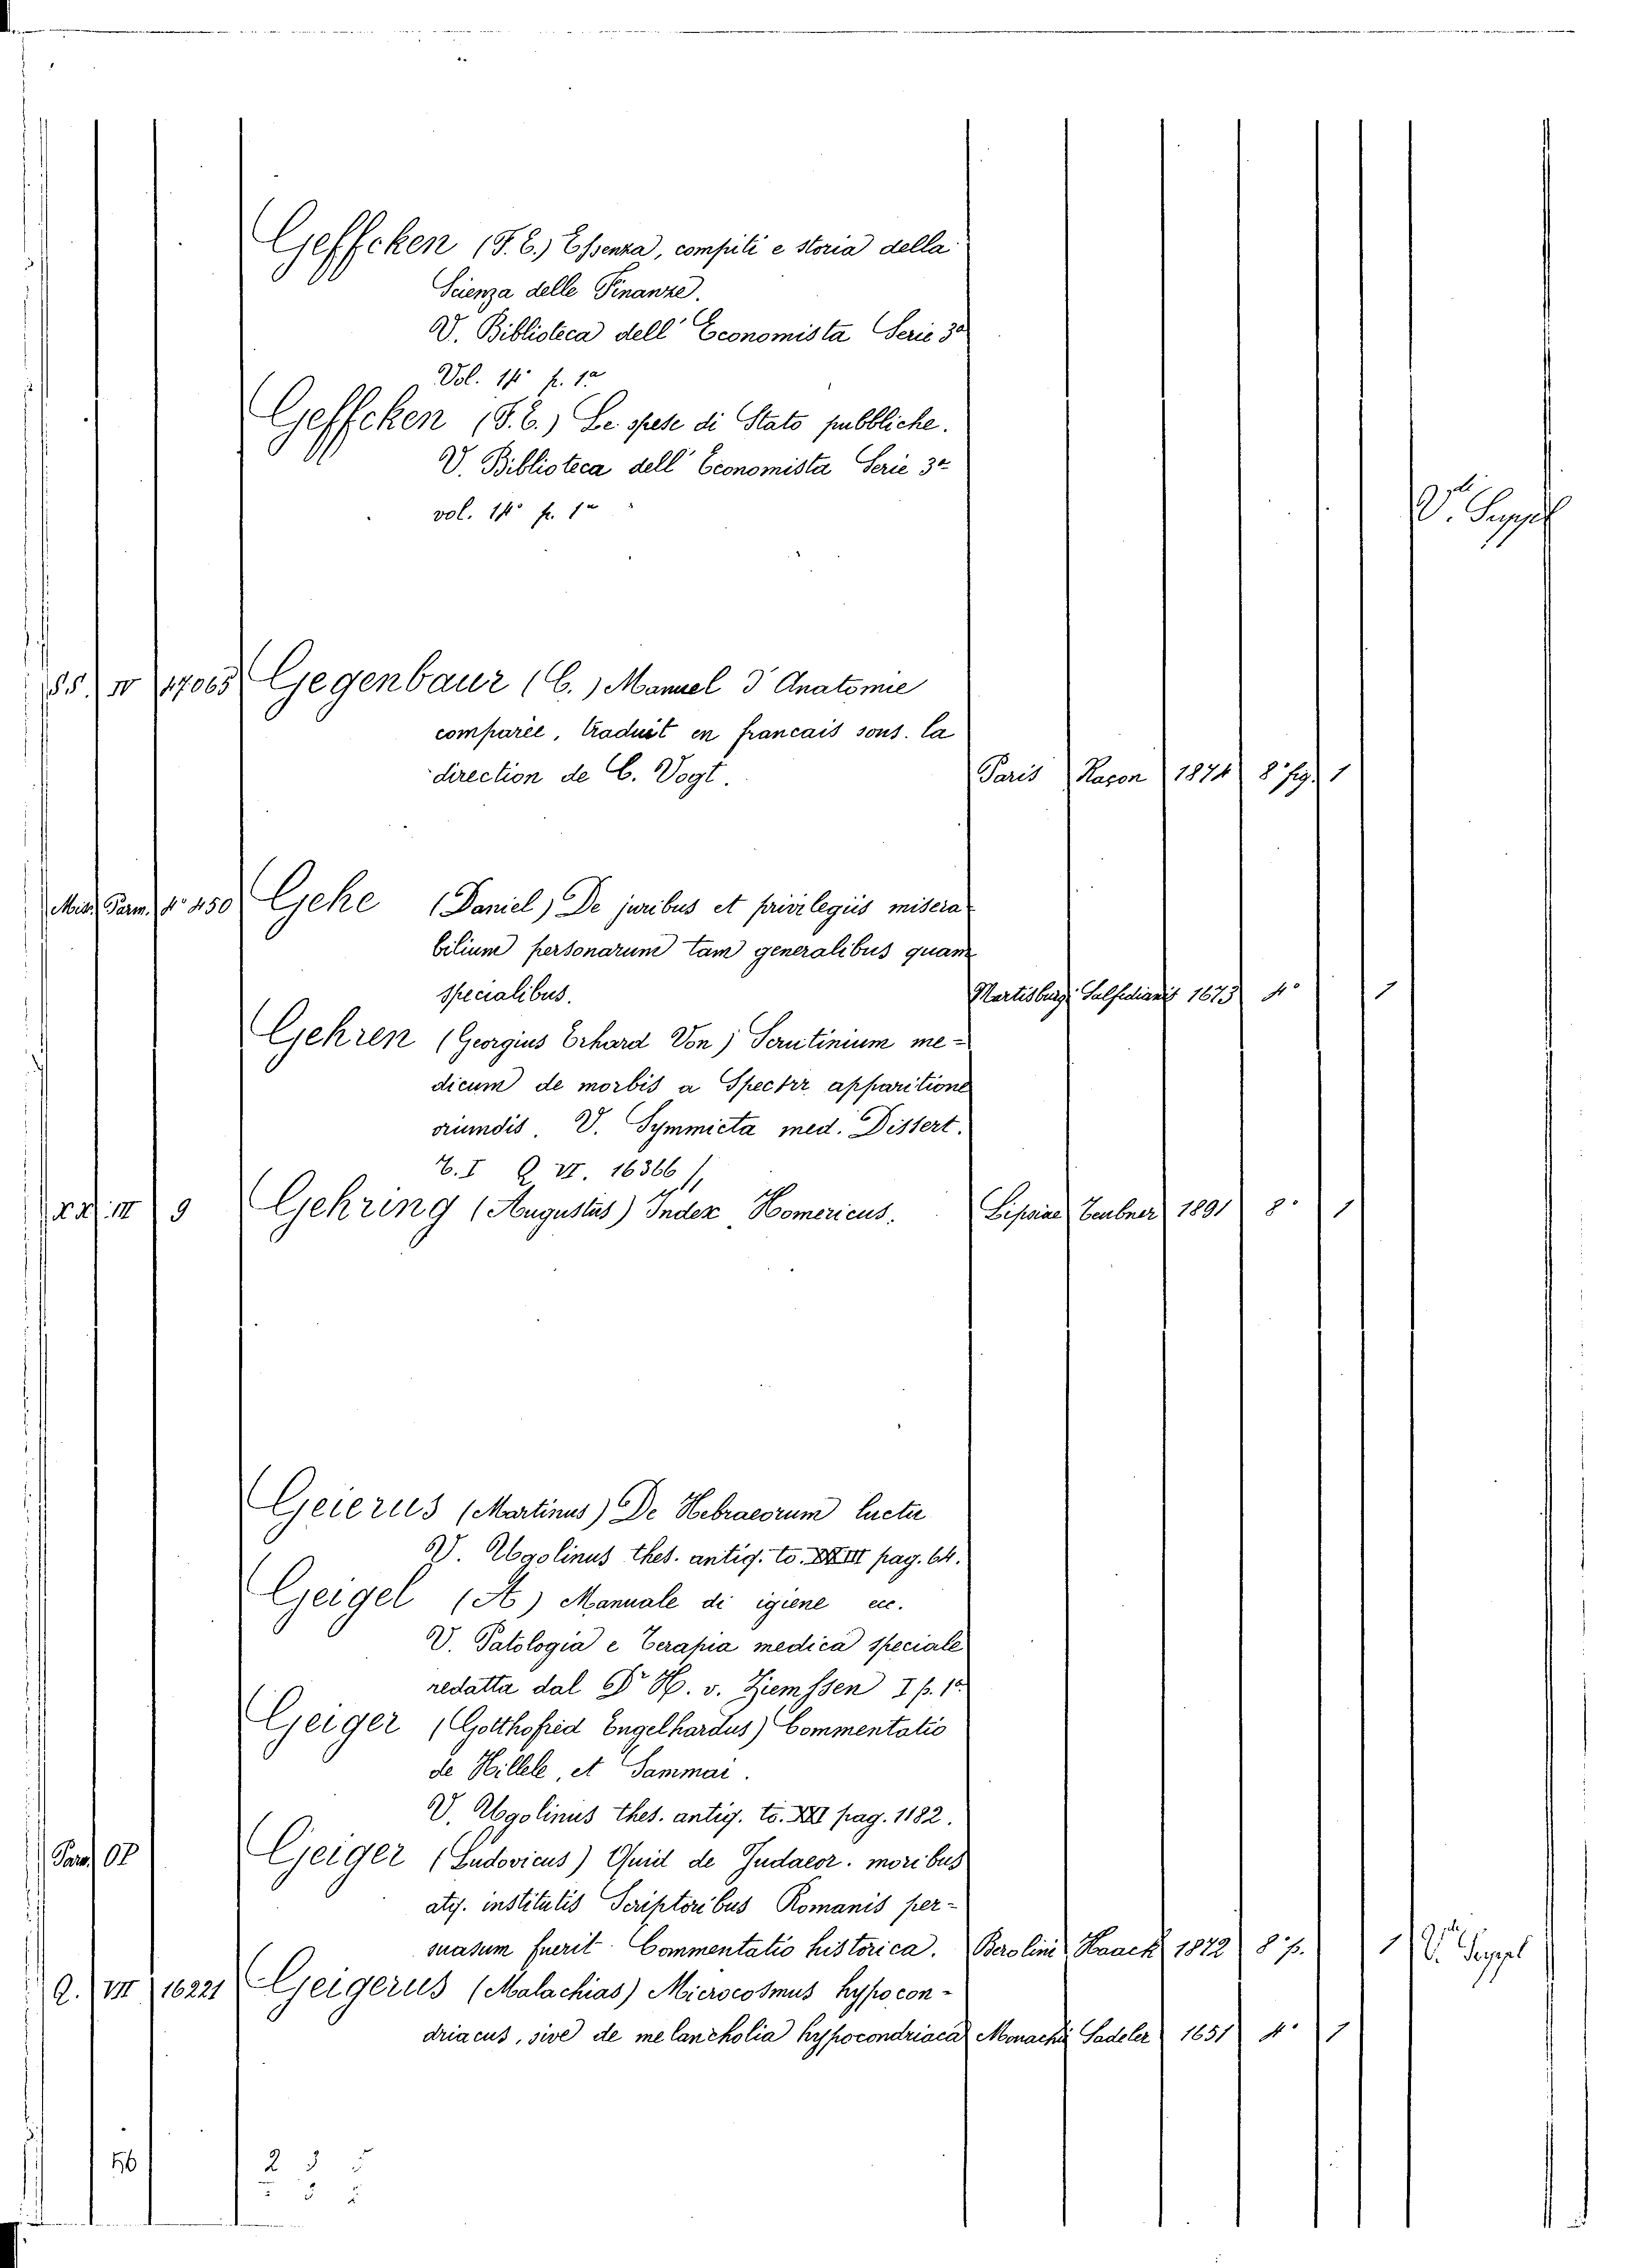 Geffcken (F. C.) Essenza, compiti e storia della
Scienza delle Finanze.
V. Biblioteca dell' Economista Serie 3ª
Vol. 14° p. 1ª
Geffcken (F. C.) Le spese di Stato pubbliche.
V. Biblioteca dell' Economista Serie 3ª
vol. 14° p. 1ª
V. Suppl
SS. IV 17065 Gegenbaur (C.) Manuel d'Anatomie
comparèe, traduit en francais sous la
direction de C. Vogt. Paris Raçon 1874 8° fig. 1
Misc. Parm. 4° 450 Gehe (Daniel) De juribus et privilegiis misera
bilium personarum tam generalibus quam
specialibus. Martisburgi 1673 4° 1
Gehren (Georgius Erhard Von) Scrutinium me=
dicum de morbis a Spectrr apparitione
oriundis. V. Symmicta med. Dissert.
T. I Q. VI. 16366
XX. III 9 Gehring (Augustus) Index Homericus. Lipsiae Teubner 1891 8° 1
Geierus (Martinus) De Hebraeorum luctu
V. Ugolinus thes. antiq. to. XXXIII pag. 64.
Geigel (A) Manuale di igiene ecc.
V. Patologia e Terapia medica speciale
redatta dal Dr H. v. Ziemssen I p. 1ª
Geiger (Gotthofred Engelhardus) Commentatio
de Hillele, et Sammai.
V. Ugolinus thes. antiq. to. XXI pag. 1182.
Parm. OP Geiger (Ludovicus) Quid de Judaeor. moribus
atq. institutis Scriptoribus Romanis per-
suasum fuerit. Commentatio historica. Berolini Haack 1872 8° p. 1 V. Suppl
Q. VII 16221 Geigerus (Malachias) Microcosmus hypocon-
driacus, sive de melancholia hypocondriaca Monachii Sadeler 1651 4° 1
56